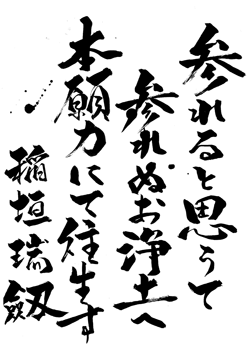 参れると思うて
参れぬお浄土へ
本願力にて往生す
稲垣瑞劔